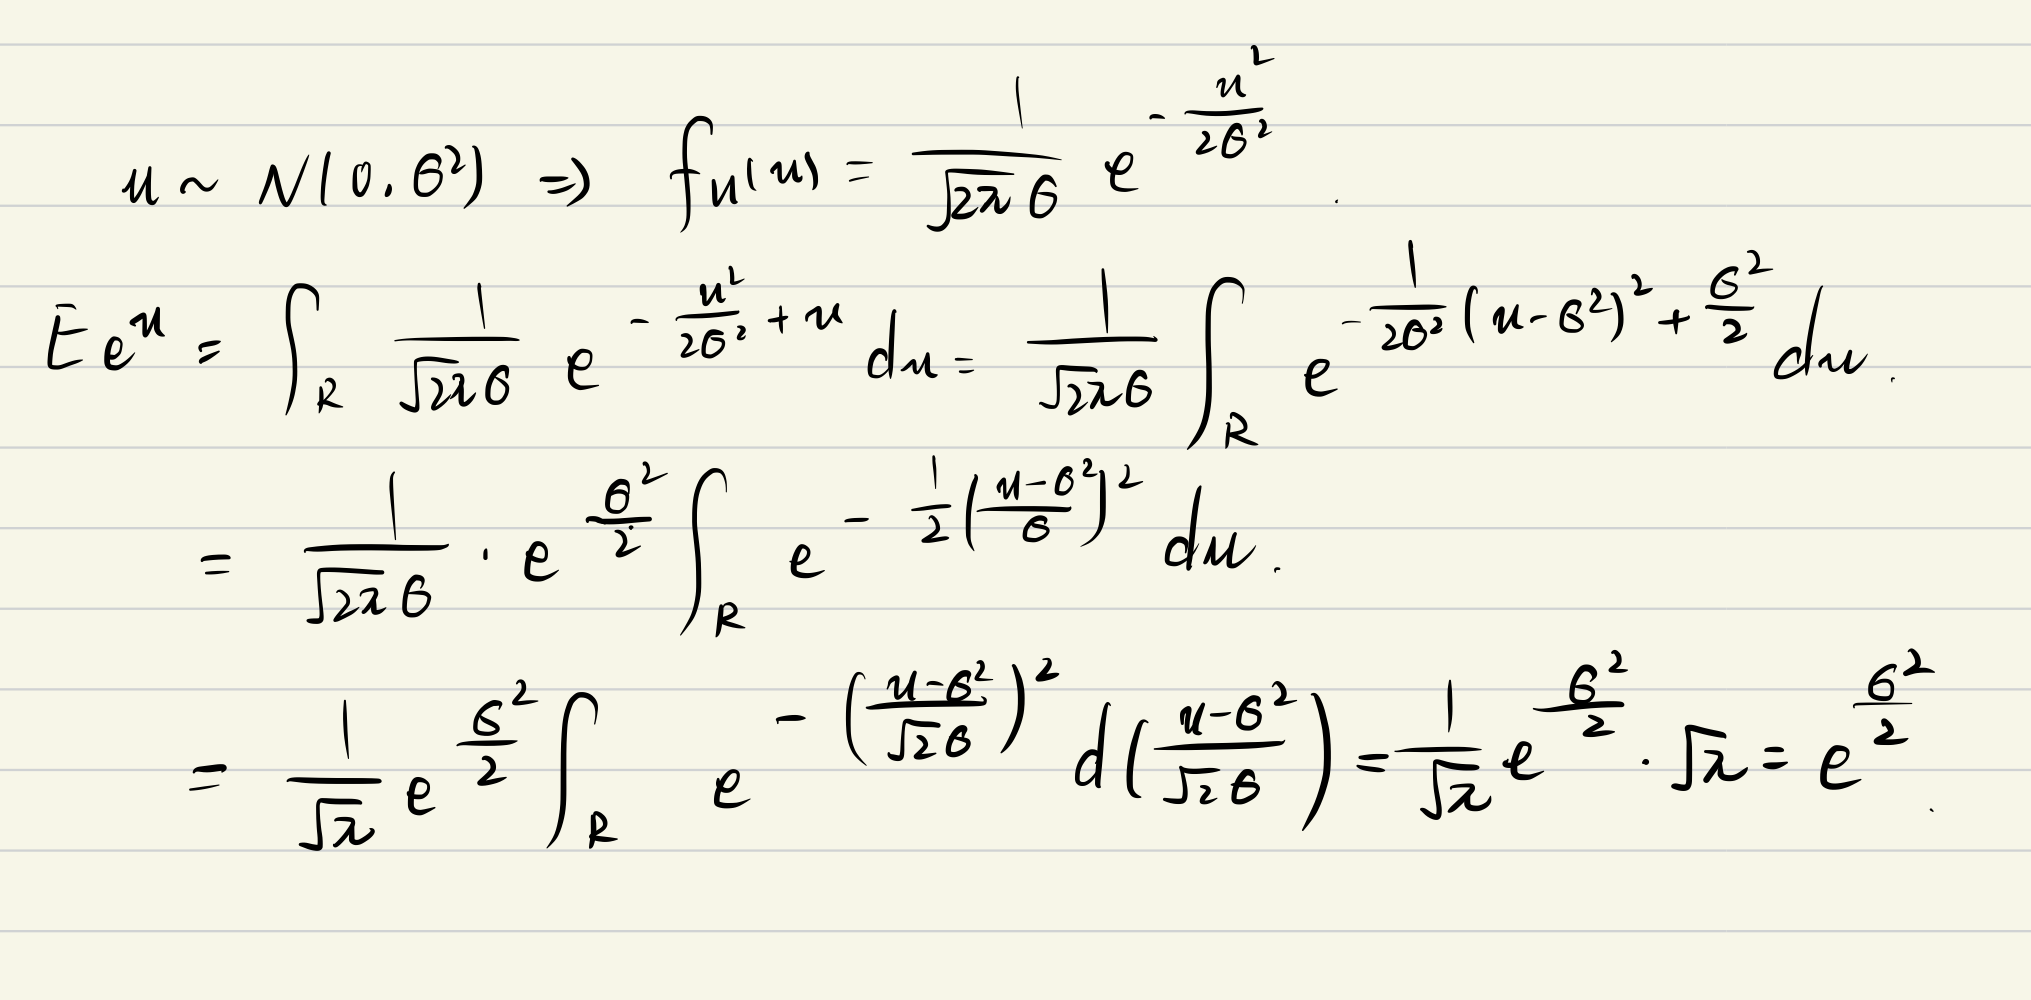 u ~ N(0, σ²) ⇒ f_u(u) = \frac{1}{\sqrt{2π}σ} e^{-\frac{u²}{2σ²}}.
E e^u = ∫_R \frac{1}{\sqrt{2π}σ} e^{-\frac{u²}{2σ²}+u} du = \frac{1}{\sqrt{2π}σ} ∫_R e^{-\frac{1}{2σ²}(u-σ²)²+\frac{σ²}{2}} du.
= \frac{1}{\sqrt{2π}σ} · e^{\frac{σ²}{2}} ∫_R e^{-\frac{1}{2}(\frac{u-σ²}{σ})²} du.
= \frac{1}{\sqrt{π}} e^{\frac{σ²}{2}} ∫_R e^{-(\frac{u-σ²}{\sqrt{2}σ})²} d(\frac{u-σ²}{\sqrt{2}σ}) = \frac{1}{\sqrt{π}} e^{\frac{σ²}{2}} · \sqrt{π} = e^{\frac{σ²}{2}}.